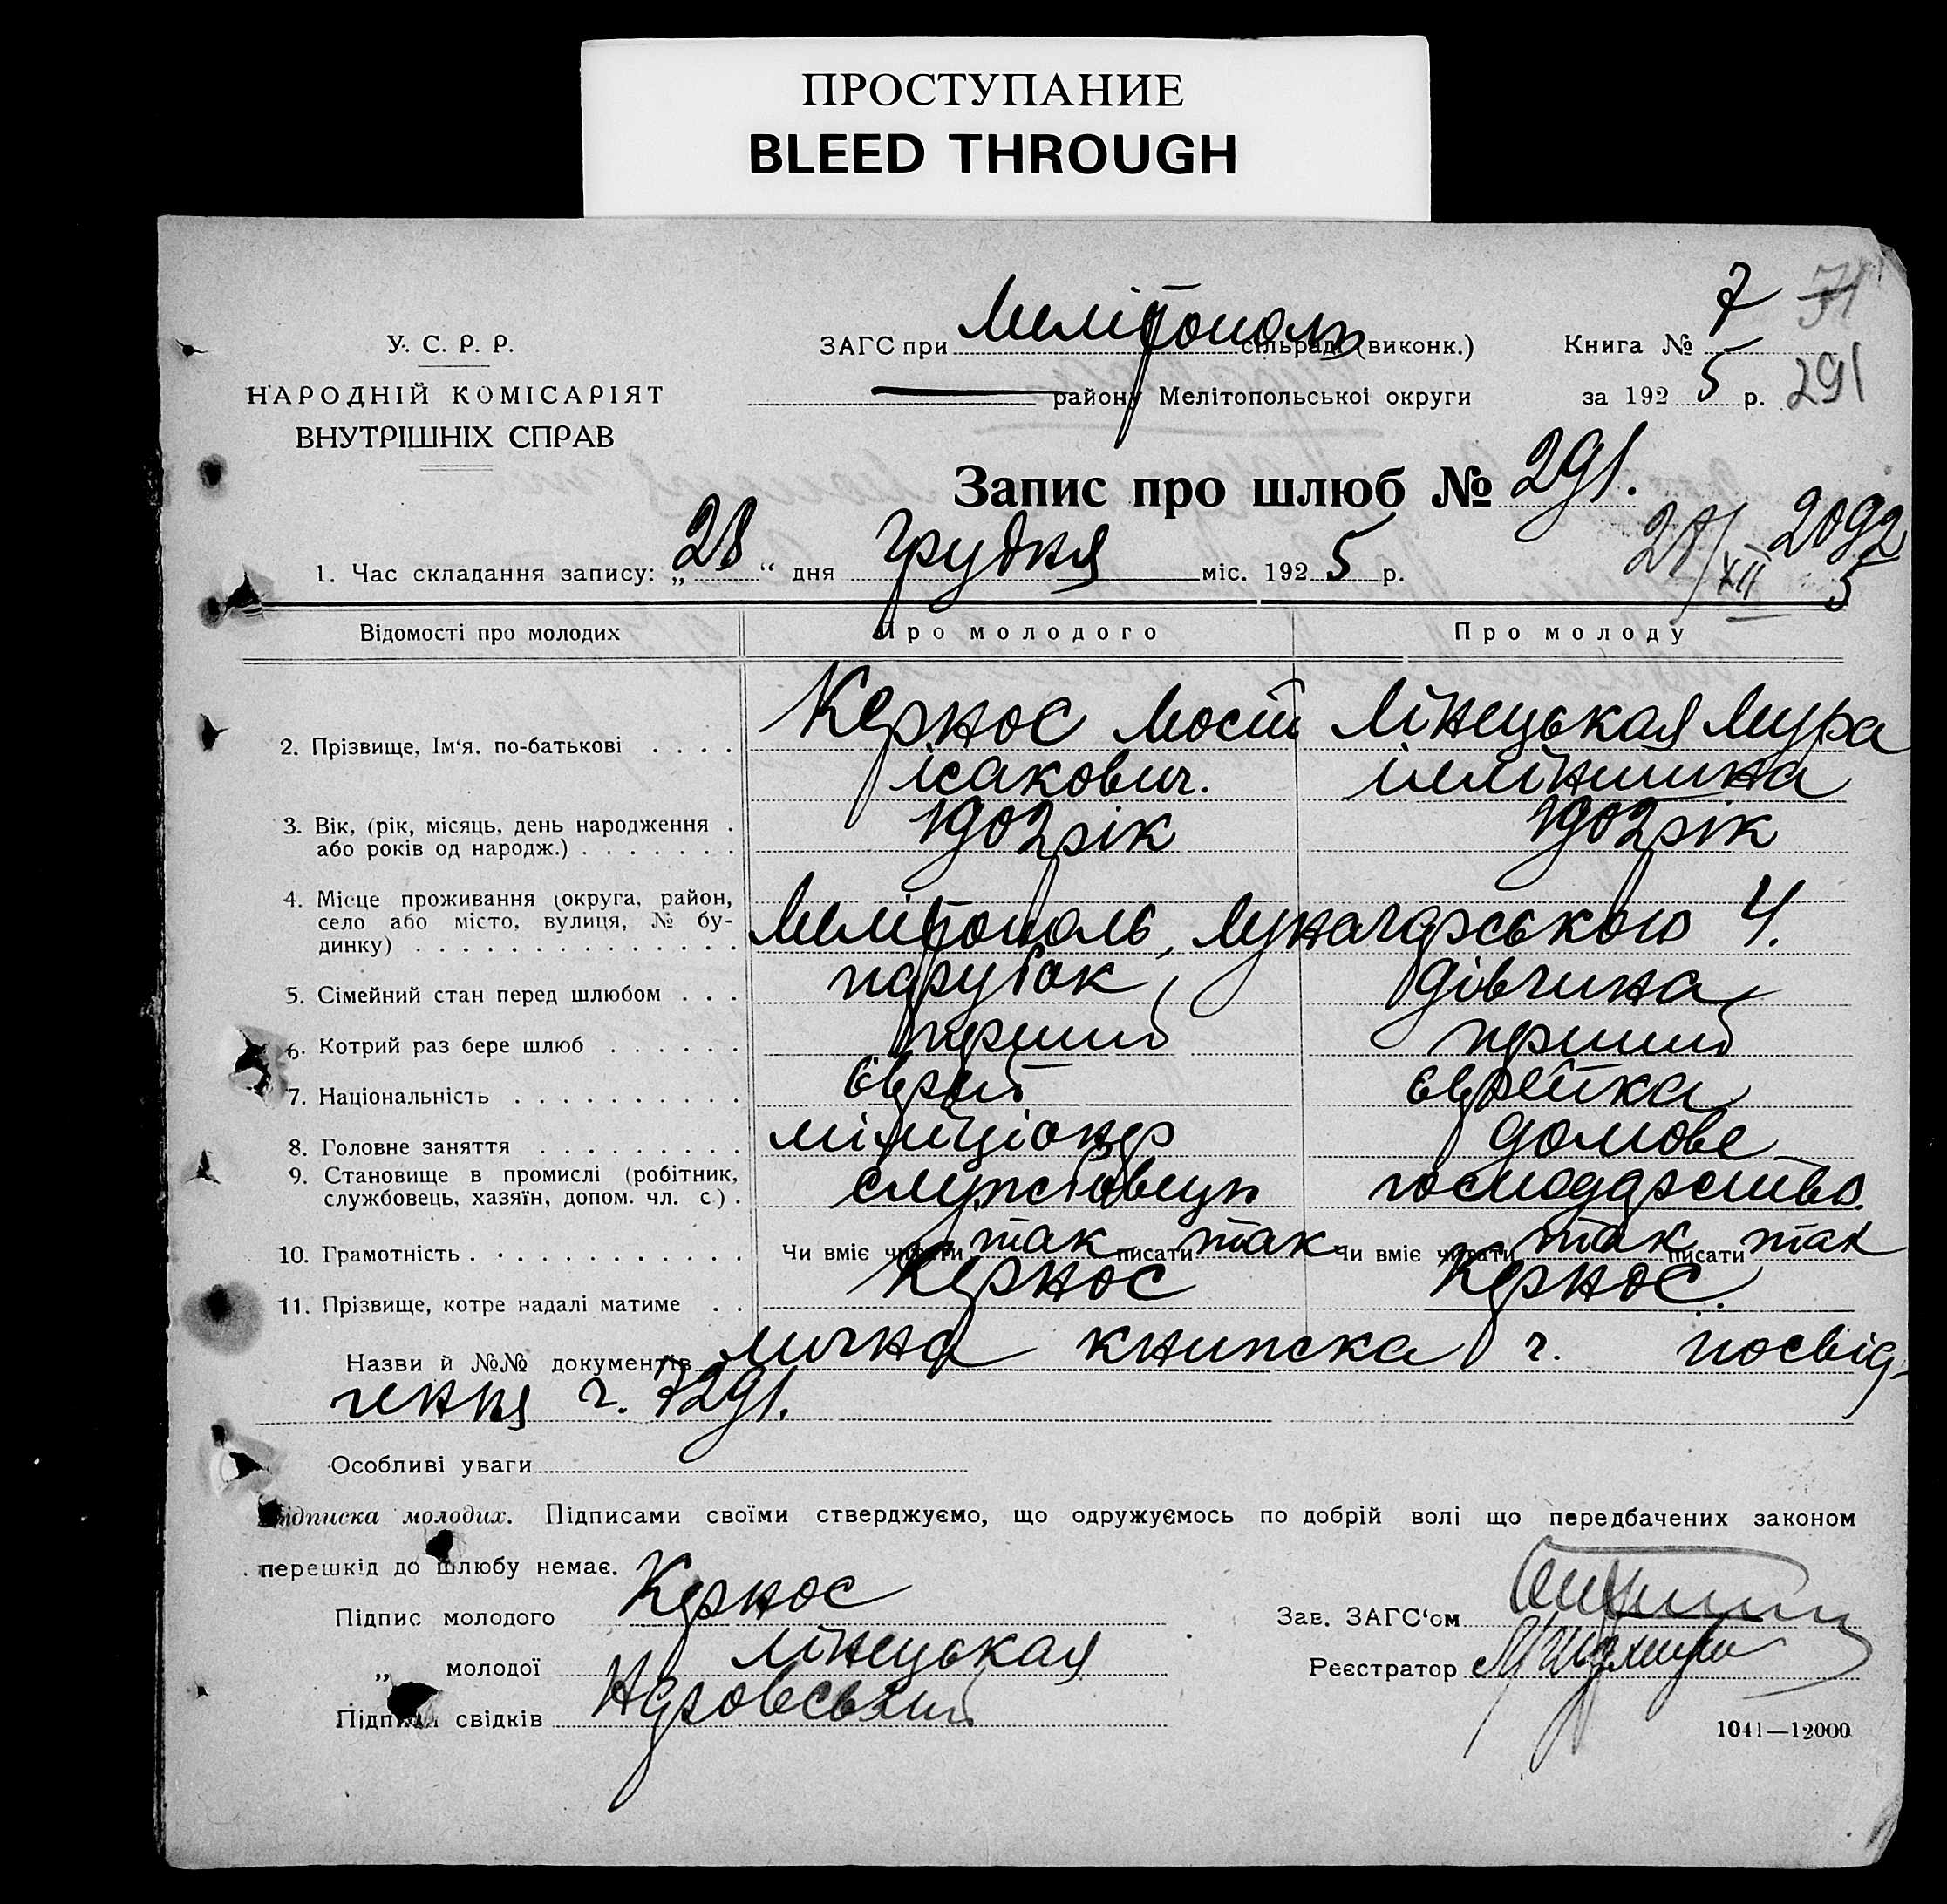 ПРОСТУПАНИЕ
BLEED THROUGH
7 71
У. С. Р. Р. ЗАГС при Мелітополь сільраді (виконк.) Книга №
НАРОДНІЙ КОМІСАРІЯТ району Мелітопольської округи за 1925 р. 291
ВНУТРІШНІХ СПРАВ
Запис про шлюб № 291.
28/XII 5 2092
1. Час складання запису: „28“ дня грудня міс. 1925 р.
Відомості про молодих Про молодого Про молоду
2. Прізвище, Ім‘я, по-батькові . . . . Кернос Лінецькая Мура
ісакович.
3. Вік, (рік, місяць, день народження . 1902 рік 1902 рік
або років од народж.) . . . . . . .
4. Місце проживання (округа, район,
село або місто, вулиця, № бу-
динку) . . . . . . . . . . . . . . Мелітополь, Луначарського 4.
5. Сімейний стан перед шлюбом . . . парубок, дівчина
6. Котрий раз бере шлюб . . . . . . перший перший
7. Національність . . . . . . . . . . єврей єврейка
8. Головне заняття . . . . . . . . . міліціонер домове
9. Становище в промислі (робітник,
службовець, хазяїн, допом. чл. с) . службовець господарство.
10. Грамотність . . . . . . . . . . . Чи вміє читати так писати так Чи вміє читати так писати так
11. Прізвище, котре надалі матиме . . Кернос Кернос.
Назви й №№ документів лична книжка ч. посвід-
чення ч. 7291.
Особливі уваги
Підписка молодих. Підписами своїми стверджуємо, що одружуємось по добрій волі що передбачених законом
перешкід до шлюбу немає.
Підпис молодого Кернос Зав. ЗАГС‘ом
„ молодої Лінецькая Реєстратор
Підписи свідків
1041—12000